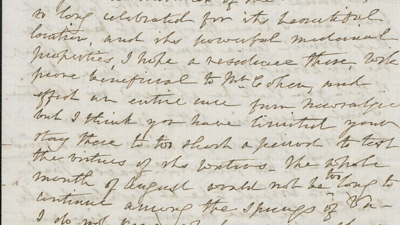 so long celebrated for its beautiful
location, and its powerful medicinal
properties, I hope a residence there, will
prove beneficial to Mr Cohen, and
effect an entire cure from Neuralgia
but I think you have limited your
stay there to too short a period to test
the virtues of its waters. The whole
month of August would not be too long to
continue among the Springs of Va-
I do not